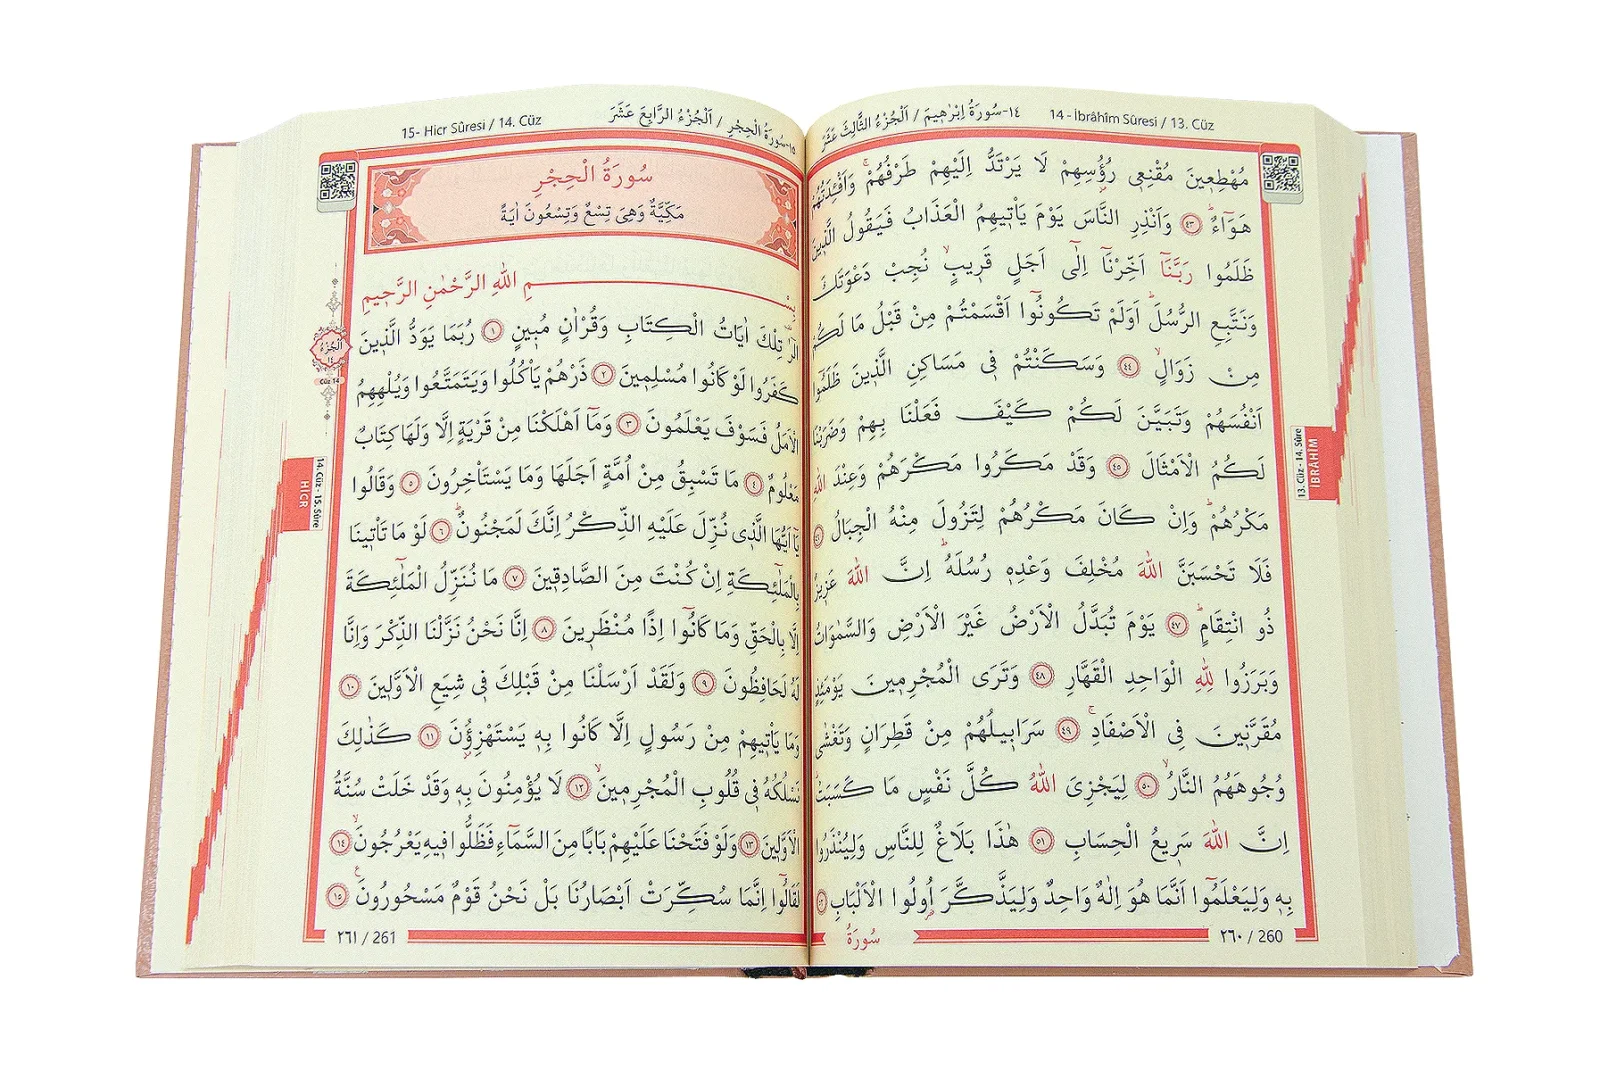 ١٤-سُورَةُ اِبْرٰهِيمَ / اَلْجُزْءُ الثَّالِثَ عَشَرَ
14 - İbrâhîm Sûresi / 13. Cüz
مُهْطِع۪ينَ مُقْنِع۪ي رُؤُ۫سِهِمْ لَا يَرْتَدُّ اِلَيْهِمْ طَرْفُهُمْۚ وَاَفْـِٔدَتُهُمْ
هَوَٓاءٌۜ ﴿٤٣﴾ وَاَنْذِرِ النَّاسَ يَوْمَ يَأْت۪يهِمُ الْعَذَابُ فَيَقُولُ الَّذ۪ينَ
ظَلَمُوا رَبَّنَٓا اَخِّرْنَٓا اِلٰٓى اَجَلٍ قَر۪يبٍۙ نُجِبْ دَعْوَتَكَ
وَنَتَّبِعِ الرُّسُلَۜ اَوَلَمْ تَكُونُٓوا اَقْسَمْتُمْ مِنْ قَبْلُ مَا لَكُمْ
مِنْ زَوَالٍۙ ﴿٤٤﴾ وَسَكَنْتُمْ ف۪ي مَسَاكِنِ الَّذ۪ينَ ظَلَمُٓوا
اَنْفُسَهُمْ وَتَبَيَّنَ لَكُمْ كَيْفَ فَعَلْنَا بِهِمْ وَضَرَبْنَا
لَكُمُ الْاَمْثَالَ ﴿٤٥﴾ وَقَدْ مَكَرُوا مَكْرَهُمْ وَعِنْدَ اللّٰهِ
مَكْرُهُمْۜ وَاِنْ كَانَ مَكْرُهُمْ لِتَزُولَ مِنْهُ الْجِبَالُ ﴿٤٦﴾
فَلَا تَحْسَبَنَّ اللّٰهَ مُخْلِفَ وَعْدِه۪ رُسُلَهُۜ اِنَّ اللّٰهَ عَز۪يزٌ
ذُو انْتِقَامٍۜ ﴿٤٧﴾ يَوْمَ تُبَدَّلُ الْاَرْضُ غَيْرَ الْاَرْضِ وَالسَّمٰوَاتُ
وَبَرَزُوا لِلّٰهِ الْوَاحِدِ الْقَهَّارِ ﴿٤٨﴾ وَتَرَى الْمُجْرِم۪ينَ يَوْمَئِذٍ
مُقَرَّن۪ينَ فِي الْاَصْفَادِۚ ﴿٤٩﴾ سَرَاب۪يلُهُمْ مِنْ قَطِرَانٍ وَتَغْشٰى
وُجُوهَهُمُ النَّارُۙ ﴿٥٠﴾ لِيَجْزِيَ اللّٰهُ كُلَّ نَفْسٍ مَا كَسَبَتْۜ
اِنَّ اللّٰهَ سَر۪يعُ الْحِسَابِ ﴿٥١﴾ هٰذَا بَلَاغٌ لِلنَّاسِ وَلِيُنْذَرُوا
بِه۪ وَلِيَعْلَمُٓوا اَنَّمَا هُوَ اِلٰهٌ وَاحِدٌ وَلِيَذَّكَّرَ اُو۬لُوا الْاَلْبَابِ ﴿٥٢﴾
سُورَةُ
٢٦٠ / 260
13. Cüz - 14. Sûre
İBRÂHÎM
١٥-سُورَةُ الْحِجْرِ / اَلْجُزْءُ الرَّابِعَ عَشَرَ
15- Hicr Sûresi / 14. Cüz
سُورَةُ الْحِجْرِ
مَكِّيَّةٌ وَهِيَ تِسْعٌ وَتِسْعُونَ اٰيَةً
بِسْــــــمِ اللّٰهِ الرَّحْمٰنِ الرَّح۪يمِ
الٓرٰ۠ تِلْكَ اٰيَاتُ الْكِتَابِ وَقُرْاٰنٍ مُب۪ينٍ ﴿١﴾ رُبَمَا يَوَدُّ الَّذ۪ينَ
كَفَرُوا لَوْ كَانُوا مُسْلِم۪ينَ ﴿٢﴾ ذَرْهُمْ يَأْكُلُوا وَيَتَمَتَّعُوا وَيُلْهِهِمُ
الْاَمَلُ فَسَوْفَ يَعْلَمُونَ ﴿٣﴾ وَمَٓا اَهْلَكْنَا مِنْ قَرْيَةٍ اِلَّا وَلَهَا كِتَابٌ
مَعْلُومٌ ﴿٤﴾ مَا تَسْبِقُ مِنْ اُمَّةٍ اَجَلَهَا وَمَا يَسْتَأْخِرُونَ ﴿٥﴾ وَقَالُوا
يَٓا اَيُّهَا الَّذ۪ي نُزِّلَ عَلَيْهِ الذِّكْرُ اِنَّكَ لَمَجْنُونٌۜ ﴿٦﴾ لَوْ مَا تَأْت۪ينَا
بِالْمَلٰٓئِكَةِ اِنْ كُنْتَ مِنَ الصَّادِق۪ينَ ﴿٧﴾ مَا نُنَزِّلُ الْمَلٰٓئِكَةَ
اِلَّا بِالْحَقِّ وَمَا كَانُٓوا اِذًا مُنْظَر۪ينَ ﴿٨﴾ اِنَّا نَحْنُ نَزَّلْنَا الذِّكْرَ وَاِنَّا
لَهُ لَحَافِظُونَ ﴿٩﴾ وَلَقَدْ اَرْسَلْنَا مِنْ قَبْلِكَ ف۪ي شِيَعِ الْاَوَّل۪ينَ ﴿١٠﴾
وَمَا يَأْت۪يهِمْ مِنْ رَسُولٍ اِلَّا كَانُوا بِه۪ يَسْتَهْزِؤُ۫نَ ﴿١١﴾ كَذٰلِكَ
نَسْلُكُهُ ف۪ي قُلُوبِ الْمُجْرِم۪ينَۙ ﴿١٢﴾ لَا يُؤْمِنُونَ بِه۪ وَقَدْ خَلَتْ سُنَّةُ
الْاَوَّل۪ينَ ﴿١٣﴾ وَلَوْ فَتَحْنَا عَلَيْهِمْ بَابًا مِنَ السَّمَٓاءِ فَظَلُّوا ف۪يهِ يَعْرُجُونَۙ ﴿١٤﴾
لَقَالُٓوا اِنَّمَا سُكِّرَتْ اَبْصَارُنَا بَلْ نَحْنُ قَوْمٌ مَسْحُورُونَ۟ ﴿١٥﴾
٢٦١ / 261
اَلْجُزْءُ
١٤
Cüz 14
14. Cüz - 15. Sûre
HICR